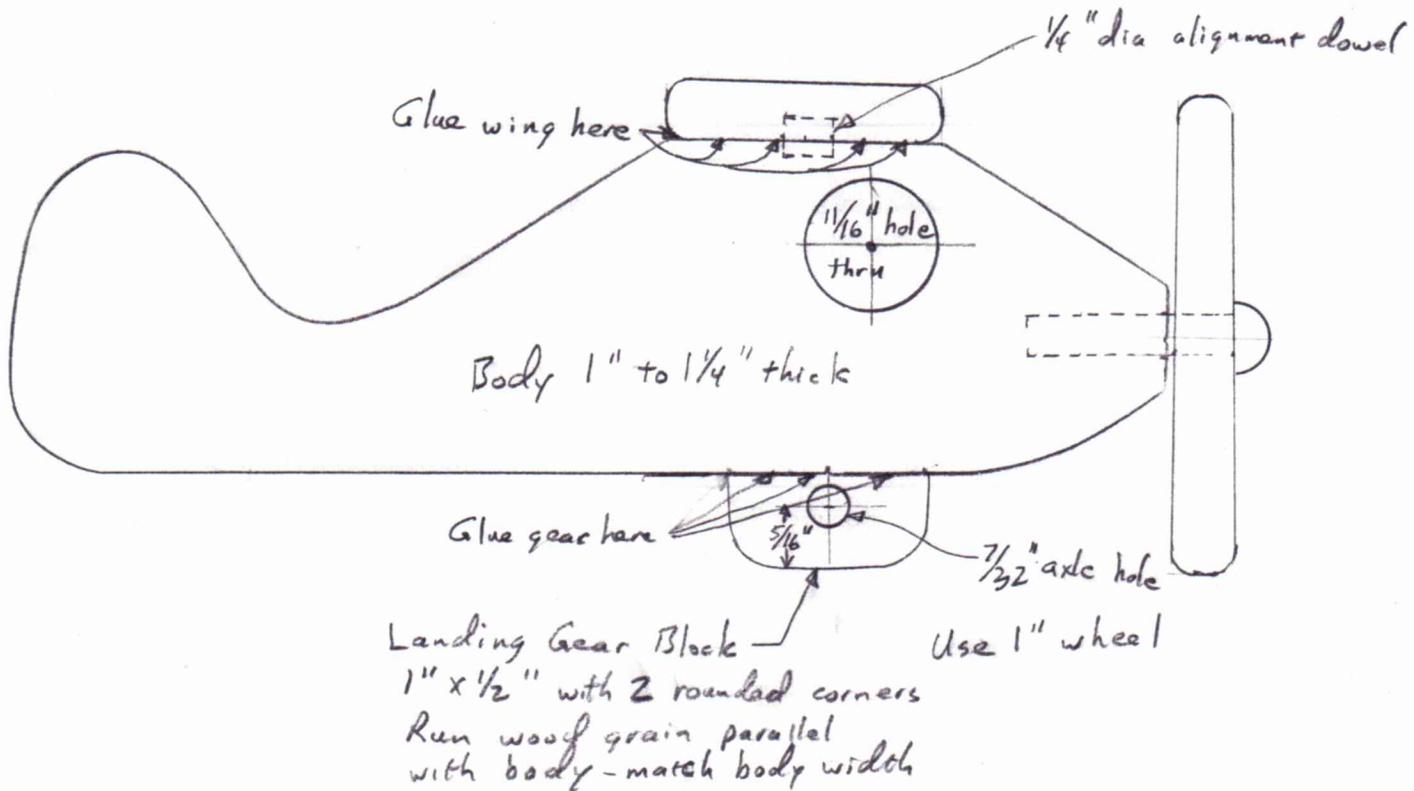 1/4" dia alignment dowel
Glue wing here
11/16" hole
thru
Body 1" to 1 1/4" thick
Glue gear here
5/16"
7/32" axle hole
Landing Gear Block
1" x 1/2" with 2 rounded corners
Run wood grain parallel
with body - match body width
Use 1" wheel